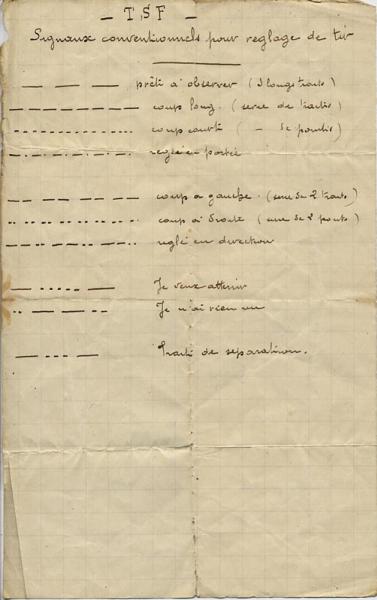 - TSF -
Signaux conventionnels pour reglage de tir
prêt à observer (3 longs traits)
coup long. (serie de traits)
coup court (- de points)
reglé en portée
coup à gauche. (serie de 2 traits)
coup à droite (serie de 2 points)
reglé en direction
Je veux atterrir
Je n'ai rien vu
Trait de separation.